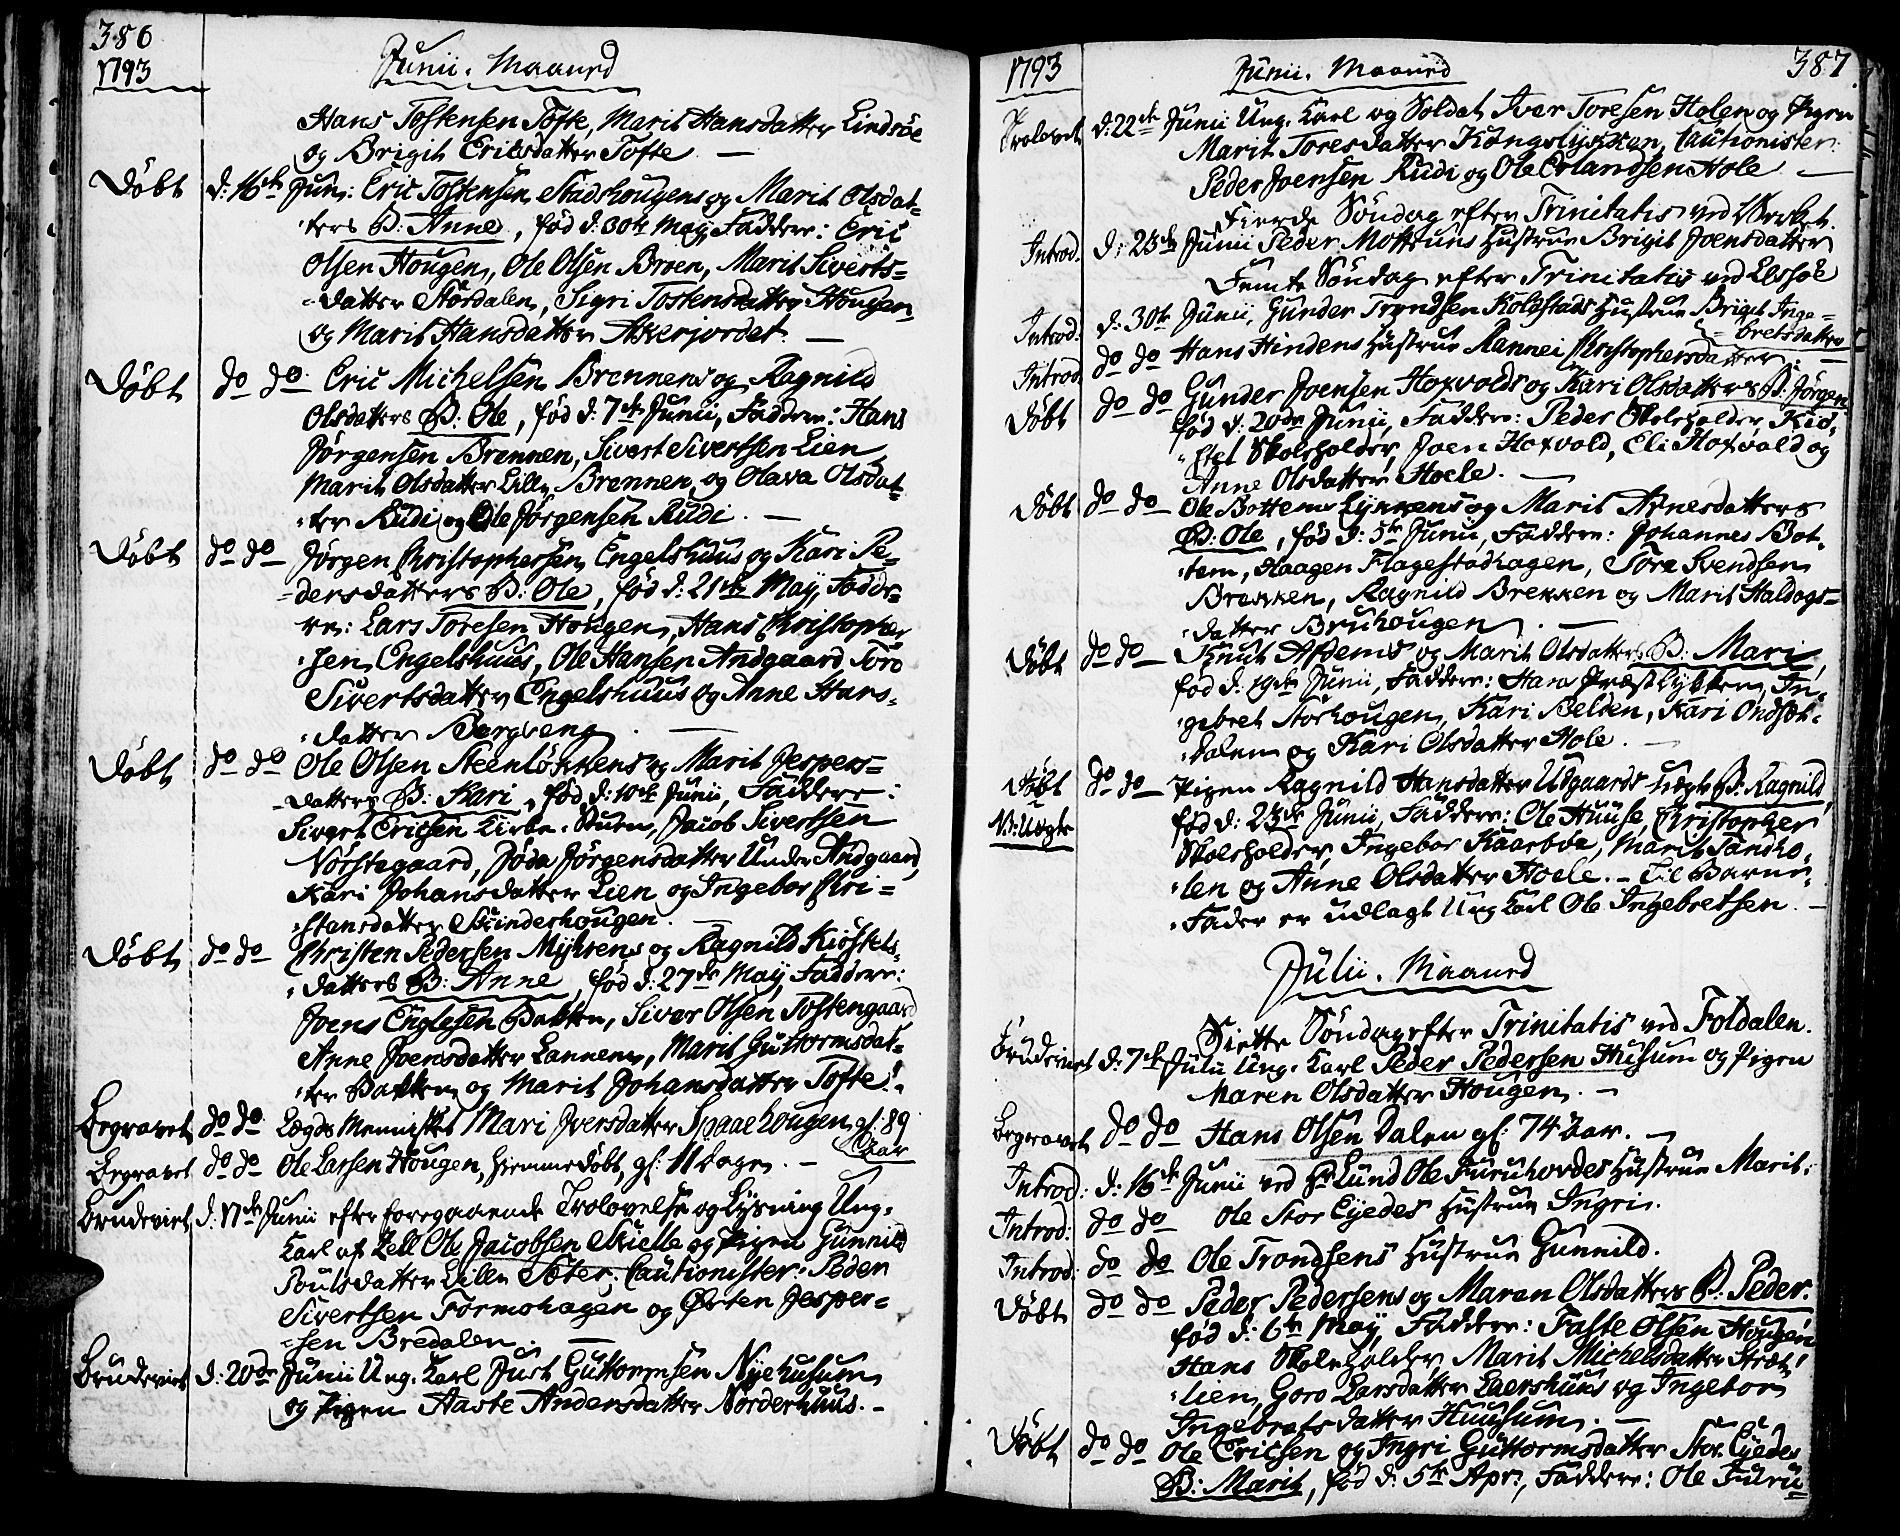 386
1793
Junii. Maaned
Hans Tostensen Tofte, Marit Hansdatter Lindsöe
og Brigit Ericsdatter Tofte. —
Döbt d: 16de Jun: Eric Tostensen Stadshougens og Marit Olsdat-
ters B: Anne, föd d: 30te May, Faddere: Eric
Olsen Hougen, Ole Olsen Broen, Marit Siverts-
datter Stördalen, Sigri Tostensdatter Hougen
og Marit Hansdatter Akerjordet. —
Döbt do do Eric Michelsen Brennens og Ragnild
Olsdatters B: Ole, föd d: 7de Junii, Faddere: Hans
Jörgensen Brennen, Sivert Sivertsen Lien,
Marit Olsdatter Lille Brennen, og Olava Olsdat-
ter Rudi og Ole Jörgensen Rudi. —
Döbt do do Jörgen Christophersen Engelshuus og Kari Pe-
dersdatters B: Ole, föd d: 21de May, Fadde-
re: Lars Toresen Hougen, Hans Christopher
sen Engelshuus, Ole Hansen Andgaard Toro
Sivertsdatter Engelshuus og Anne Hans-
datter Bergseng. —
Döbt do do Ole Olsen Steenlökkens og Marit Jespers-
datters B: Kari, föd d: 10de Junii, Faddere:
Sivert Ericsen Kirke-Stuen, Jacob Sivertsen
Norstegaard, Jöda Jörgensdatter Under Andgaard,
Kari Johansdatter Lien og Ingebor Chri-
stensdatter Skinderhougen. —
Döbt do do Christen Pedersen Myhrens og Ragnild Kiöstels-
datters B: Anne, föd d: 27de May, Faddere:
Joens Englesen Bakken, Siver Olsen Tostengaard
Anne Joensdatter Lannem, Marit Guttormsdat-
ter Bakken og Marit Johansdatter Tofte. —
Begravet do do Lægds Mennisket Mari Iversdatter Spaaehougen, gl: 89
Aar
Begravet do do Ole Larsen Hougen, hiemmedöbt, gl: 11 Dage. —
Brudeviet d: 17de Junii efter foregaaende Trolovelse og Lysning Ung-
Karl af Lell Ole Jacobsen Skielle og Pigen Gunnild
Poulsdatter Lille Sæter, Cautionister: Peder
Sivertsen Formohagen og Östen Jesper-
sen Bredalen. —
Brudeviet d: 20de Junii Ung-Karl Just Guttormsen Nyehusum
og Pigen Aaste Andersdatter Norderhuus. —
1793
Junii. Maaned
387
Trolovet d: 22de Junii Ung-Karl og Soldat Iver Toresen Holen og Pigen
Marit Toresdatter Kongslykken, Cautionister:
Peder Joensen Rudi og Ole Erlandsen Hole. —
Fierde Söndag efter Trinitatis ved
Introd. d: 23de Junii Peder Mottruns Hustrue Brigit Joensdatter
Femte Söndag efter Trinitatis ved Lessöe
Introd: d: 30te Junii, Gunder Trondsen Kolostads Hustrue Brigit Inge-
bretsdatter
Introd. do do Hans Hindens Hustrue Rannei Christophersdatter. —
Döbt do do Gunder Joensen Hoxvolds og Kari Olsdatters B: Jörgen
föd d: 20de Junii, Faddere: Peder Skoleholder, Kiö-
stel Skoleholder, Joen Hoxvold, Eli Hoxvold og
Anne Olsdatter Hoele. —
Döbt do do Ole Bottems Lykkens og Marit Arnesdatters
B: Ole, föd d: 5te Junii, Faddere: Johannes Bot-
tem, Haagen Flagestadhagen, Tore Svendsen
Brekken, Ragnild Brekken og Marit Haldogs-
datter Bruhougen. —
Döbt do do Knut Afdems og Marit Olsdatters B: Mari,
föd d: 19de Junii, Faddere: Hans Præstlykken, In-
gebret Storhougen, Kari Belden, Kari Ondset-
dalen og Kari Olsdatter Hole. —
Döbt do do Pigen Ragnild Hansdatter Udgaards Uægte B: Ragnild,
NB: Uægte föd d: 23de Junii, Faddere: Ole Huuse, Christopher
Skoleholder, Ingebor Kaarböe, Marit Sandho-
len og Anne Olsdatter Hoele. — Til Barne-
Fader er udlagt Ung Karl Ole Ingebretsen. —
Julii. Maaned
Siette Söndag efter Trinitatis ved Foldalen.
Brudeviet d: 7de Julii Ung-Karl Peder Pedersen Husum og Pigen
Maren Olsdatter Hougen. —
Begravet do do Hans Olsen Dalen gl: 74 Aar. —
Introd: d: 16de Junii ved St Lund Ole Furuhovdes Hustrue Marit.
Introd: do do Ole Stor Eyedes Hustrue Ingri.
Introd: do do Ole Trondsens Hustrue Gunnild.
Döbt do do Peder Pedersens og Maren Olsdatters B: Peder.
föd d: 6te May, Faddere: Faste Olsen Hougen
Hans Skoleholder, Marit Michelsdatter Stræt-
lien, Goro Larsdatter Laershuus og Ingebor
Ingebretsdatter Huusum. —
Döbt do do Ole Ericsen og Ingri Guttormsdatter Stor Eyedes
B: Marit, föd d: 5te Apr:, Faddere: Ole Furu-